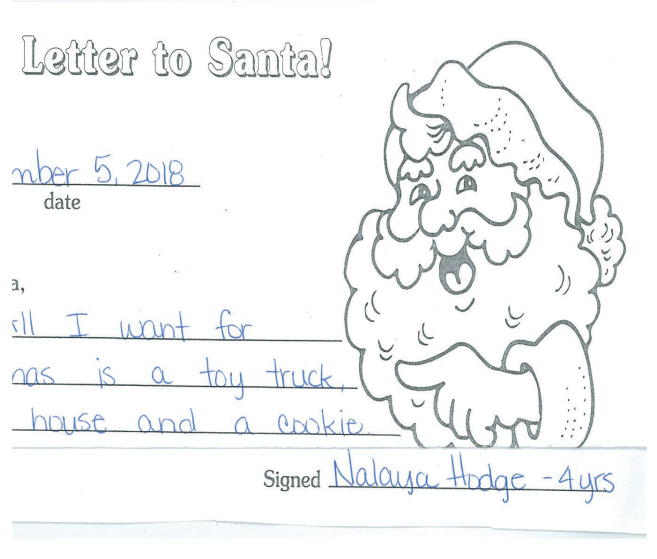 Letter to Santa!
mber 5, 2018
date
a,
all I want for
mas is a toy truck,
house and a cookie
Signed Nalaya Hodge - 4 yrs